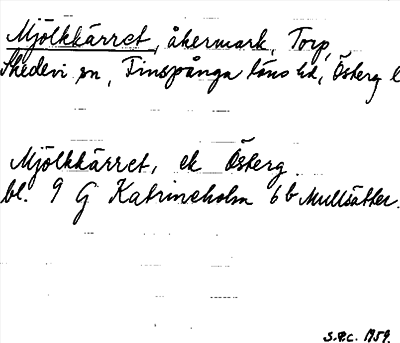 Mjölkkärret, åkermark, Torp,
Skedevi sn, Finspånga läns hd, Österg l
Mjölkkärret, ek Österg.
bl. 9 G Katrineholm 6 b Mullsätter.
S.R.C. 1959.